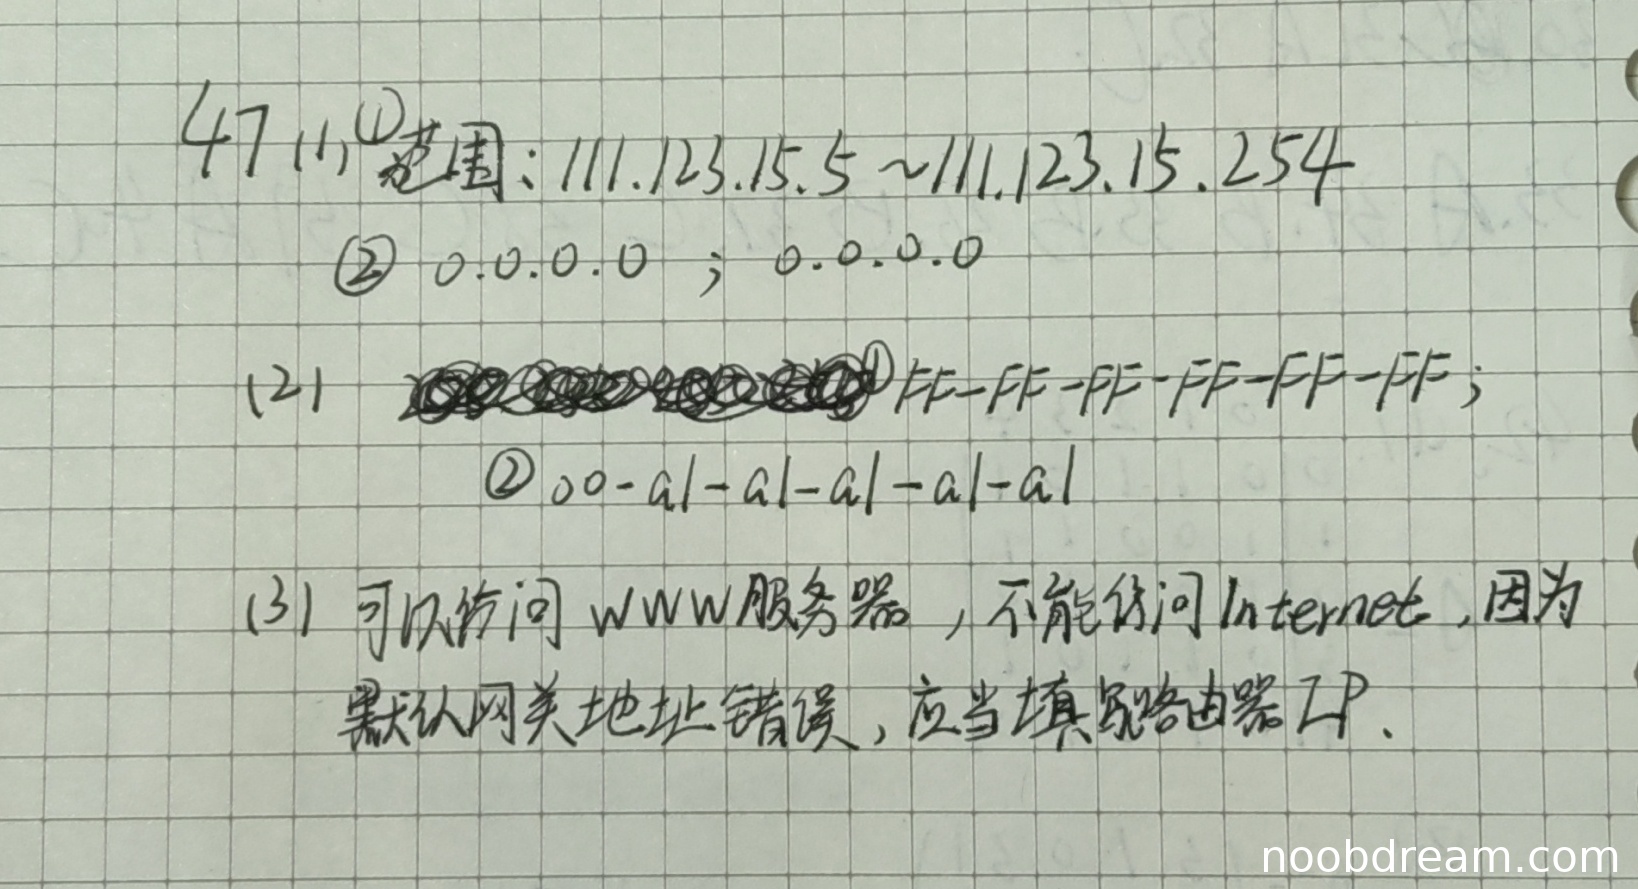 47 (1) ①范围：111.123.15.5～111.123.15.254
② 0.0.0.0 ； 0.0.0.0
(2) ①FF-FF-FF-FF-FF-FF；
②00-a1-a1-a1-a1-a1
(3) 可以访问WWW服务器，不能访问Internet，因为
默认网关地址错误，应当填写路由器IP.
noobdream.com